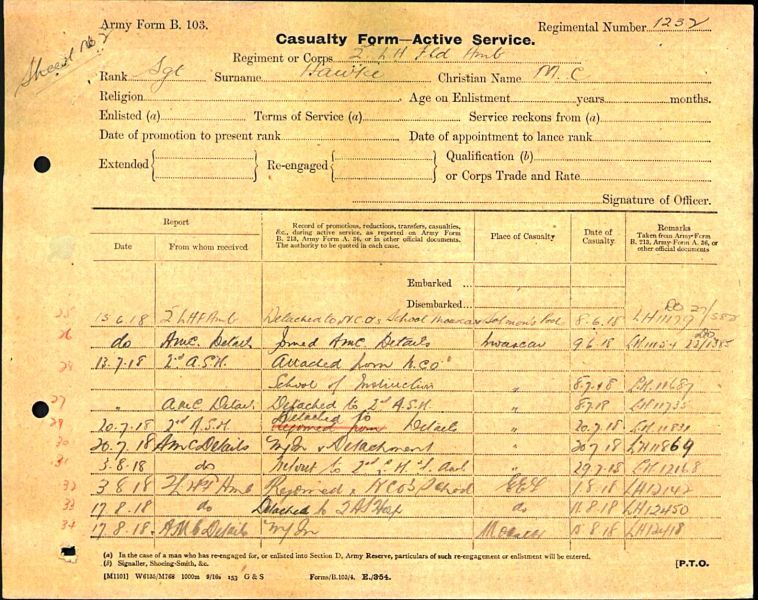 Army Form B. 103.
Regimental Number 1232
Sheet No 2
Casualty Form—Active Service.
Regiment or Corps 2 LH Fld Amb
Rank Sgt Surname Hawke Christian Name M C
Religion Age on Enlistment years months.
Enlisted (a) Terms of Service (a) Service reckons from (a)
Date of promotion to present rank Date of appointment to lance rank
Extended Re-engaged Qualification (b)
or Corps Trade and Rate
Signature of Officer.
Report
Date From whom received
Record of promotions, reductions, transfers, casualties, &c., during active service, as reported on Army Form B. 213, Army Form A. 36, or in other official documents. The authority to be quoted in each case.
Place of Casualty
Date of Casualty
Remarks
Taken from Army-Form B. 213, Army-Form A. 36, or other official documents
Embarked
Disembarked
25 13.6.18 2 LHF Amb Detached to N.C.O's School Moascar 8.6.18 LH11179
26 do AMC. Details Joined AMC Details Moascar 9.6.18
28 13.7.18 2nd A.S.H. Attached from N.C.O's
School of Instruction " 8.7.18 LH.11687
27 " AMC Details Detached to 2nd A.S.H. " 8.7.18 LH.11735
29 20.7.18 2nd A.S.H. Detached to Rejoined from Details " 20.7.18
30 20.7.18 AMC Details M/In Detachment " 20.7.18 LH11869
31 3.8.18 do " 29.7.18 LH12168
32 3.8.18 2/LHF Amb Rejoined NCO's School EEF 1.8.18 LH12142
33 17.8.18 do Detached to do LH12450
34 17.8.18 AMC Details M/In Moascar LH12418
(a) In the case of a man who has re-engaged for, or enlisted into Section D, Army Reserve, particulars of such re-engagement or enlistment will be entered.
(b) Signaller, Shoeing-Smith, &c.
[P.T.O.
[M1101] W6135/M768 1000m 9/16s 153 G & S Forms/B.103/4. E./354.